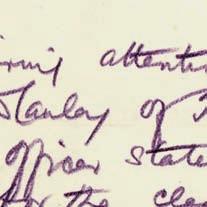 attenti
Stanley of
Officer state
for the clea